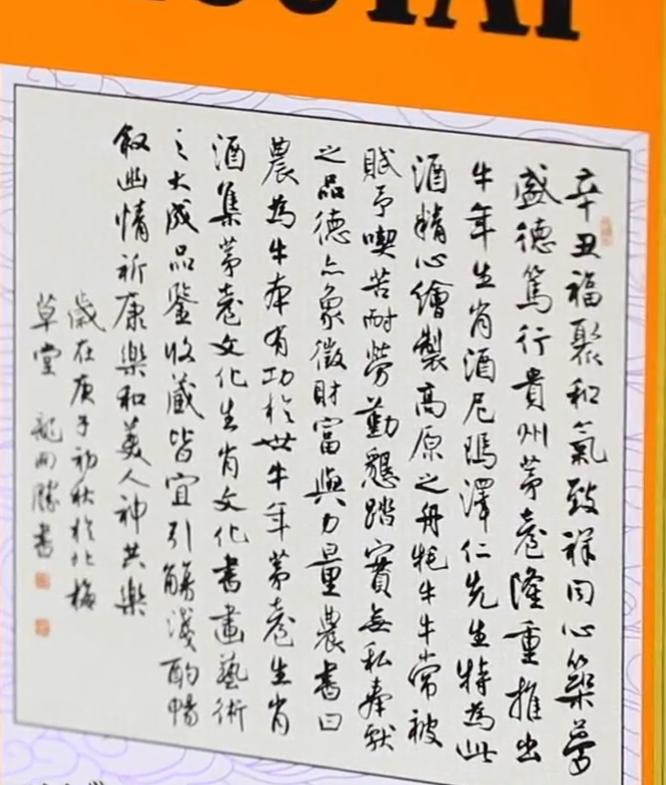 辛丑福聚和氣致祥同心築夢
盛德篤行貴州茅臺隆重推出
牛年生肖酒尼瑪澤仁先生特為此
酒精心繪製高原之舟牦牛牛常被
賦予喫苦耐勞勤懇踏實無私奉獻
之品德亦象徵財富與力量農書曰
農為牛本有功於世牛年茅臺生肖
酒集茅臺文化生肖文化書畫藝術
之大成品鑒收藏皆宜引觴淺酌暢
敘幽情祈康樂和美人神共樂
歲在庚子初秋於北
草堂 龍開勝書